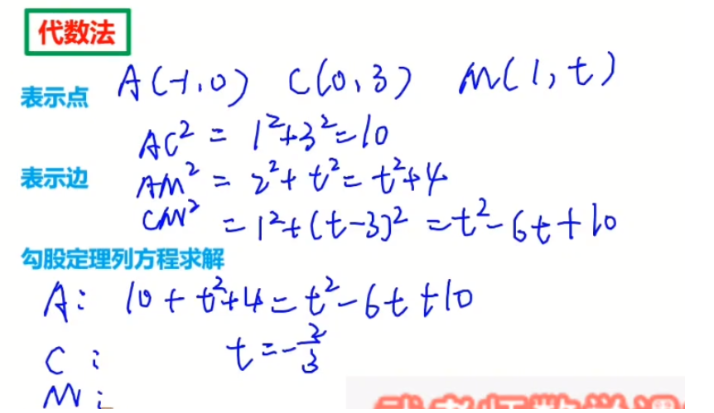 代数法
表示点 A(-1,0) C(0,3) M(1,t)
AC² = 1²+3²=10
表示边 AM² = 2²+t²=t²+4
CM² = 1²+(t-3)² =t²-6t+10
勾股定理列方程求解
A: 10+t²+4=t²-6t+10
C: t=-2/3
M: